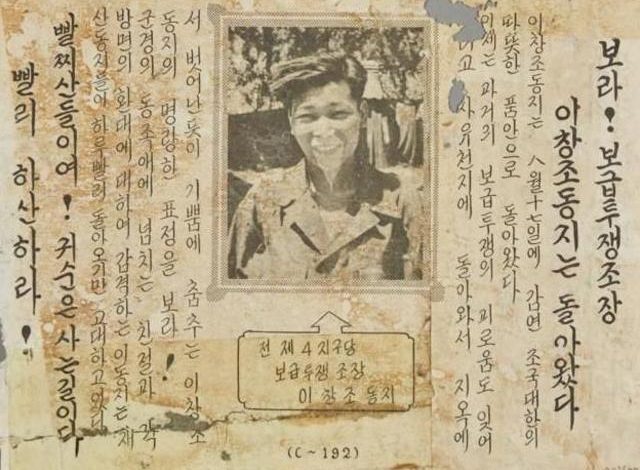 보라! 보급투쟁조장
이창조동지는 돌아왔다
이창조동지는 八월十七일에 감면 조국대한의
따뜻한 품안으로 돌아왔다
이제는 과거의 보급투쟁의 괴로움도 잊어
자유천지에 돌아와서 지옥에
전 제4지구당
보급투쟁 조장
이창조 동지
(C~192)
서 벗어난듯이 기뿜에 춤추는 이창조
동지의 명랑한 표정을 보라!
군경의 동족애에 넘치는 친절과 각
방면의 환대에 대하여 감격하는 이동지는 재
산동지들이 하루빨리 돌아오기만 고대하고있다
빨찌산들이여! 귀순은 사는길이다
빨리 하산하라!